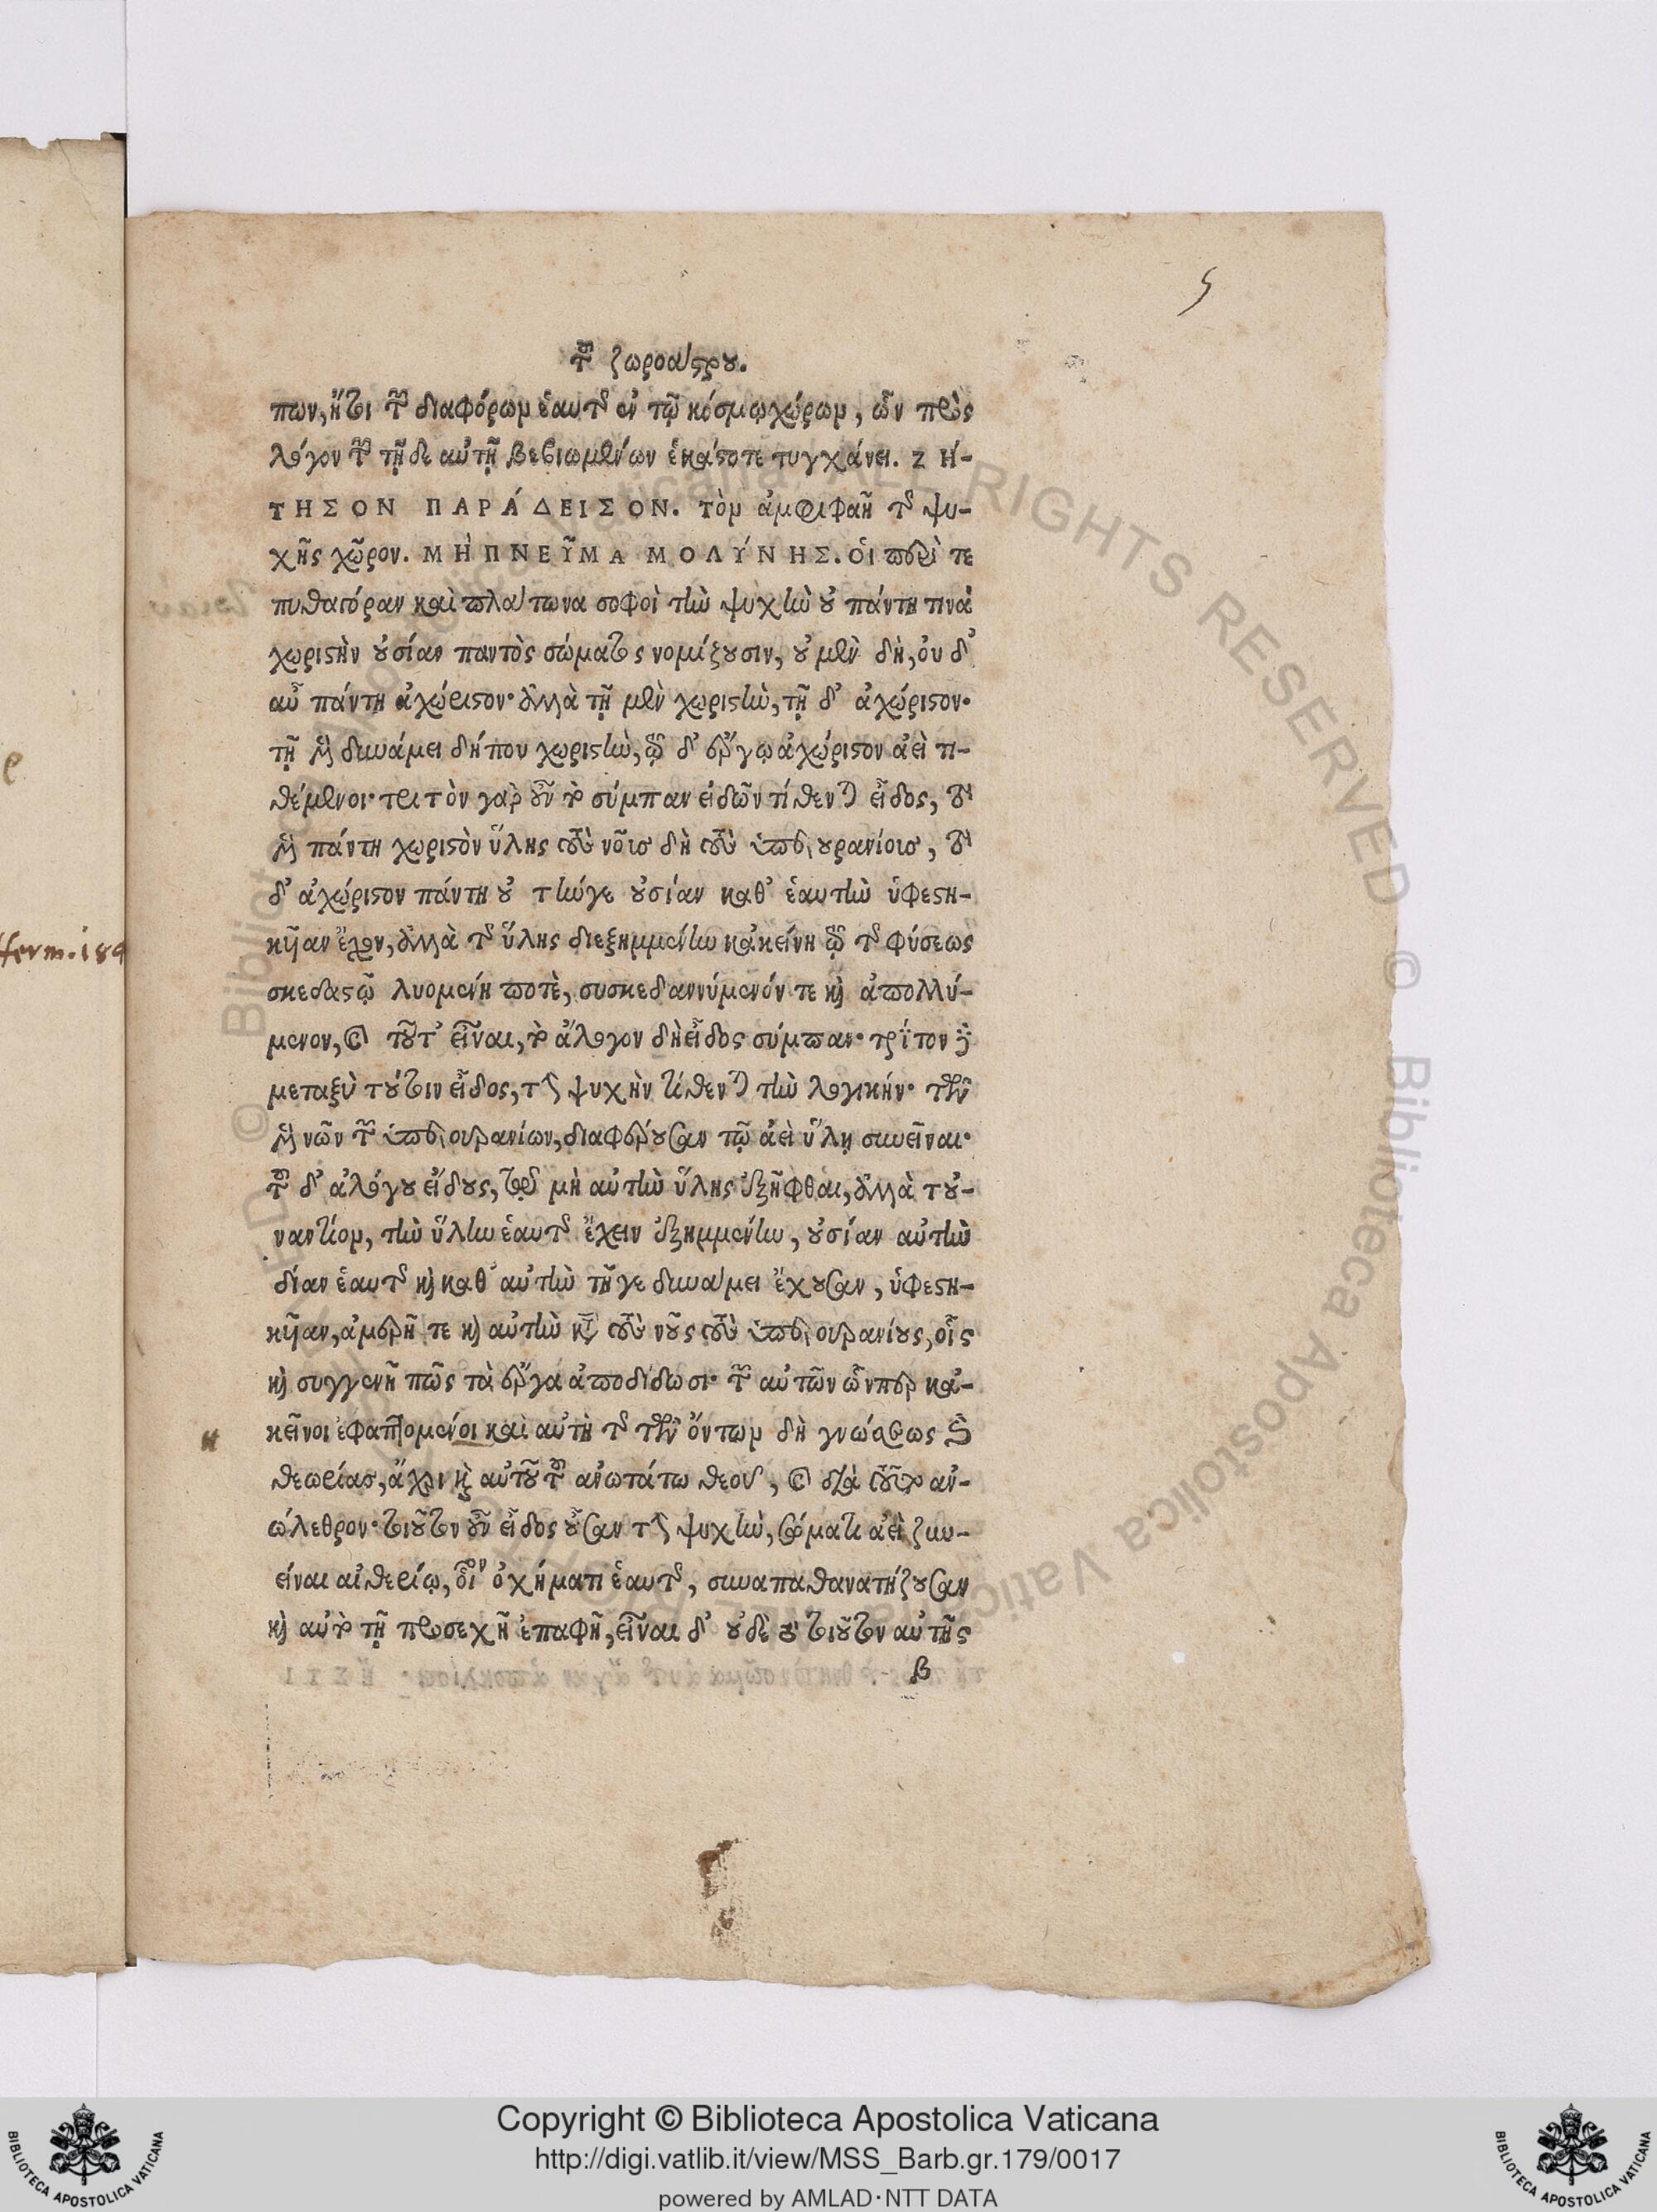 5
τοῦ ζωροάστρου.
πων, ἤτοι τῶν διαφόρωμ ἑαυτῆς ἐν τῷ κόσμῳ χώρωμ, ὧν πρὸς
λόγον τῶν τῇδε αὐτῇ βεβιωμένων ἑκάστοτε τυγχάνει. ΖΗ-
ΤΗΣΟΝ ΠΑΡΆΔΕΙΣΟΝ. τὸμ ἀμφιφαῆ τῆς ψυ-
χῆς χῶρον. ΜῊ ΠΝΕΥ͂ΜΑ ΜΟΛΎΝΗΣ. οἱ περὶ τε
πυθαγόραν καὶ πλάτωνα σοφοὶ τὴν ψυχὴν οὐ πάντη τινὰ
χωριστὴν οὐσίαν παντὸς σώματος νομίζουσιν, οὐ μὲν δὴ, οὐ δ'
αὖ πάντη ἀχώριστον· ἀλλὰ τῇ μὲν χωριστὴν, τῇ δ' ἀχώριστον·
τῇ μὲν δυνάμει δήπου χωριστὴν, τῷ δ' ἔργῳ ἀχώριστον ἀεὶ τι-
θέμενοι· τριτὸν γὰρ οὖν τὸ σύμπαν εἰδῶν τίθενται εἶδος, τὸ
μὲν πάντη χωριστὸν ὕλης τοὺς νοῖσ δὴ τοὺς ὑπερουρανίοισ, τὸ
δ' ἀχώριστον πάντη οὐ τήν γε οὐσίαν καθ' ἑαυτὴν ὑφεστη-
κῆαν ἔχον, ἀλλὰ τῆς ὕλης διεξημμένην κἀκείνη τῷ τῆς φύσεως
σκεδαστῷ λυομένῃ ποτὲ, συσκεδαννύμενόν τε καὶ ἀπολλύ-
μενον, καὶ τοῦτ' εἶναι, τὸ ἄλογον δὴ εἶδος σύμπαν· τρίτον δὲ
μεταξὺ τούτοιν εἶδος, τὴν ψυχὴν τίθενται τὴν λογικήν· τῶν
μὲν νῶν τῶν ὑπερουρανίων, διαφέρουσαν τῷ ἀεὶ ὕλῃ συνεῖναι·
τοῦ δ' ἀλόγου εἴδους, τῷ μὴ αὐτὴν ὕλης ἐξῆφθαι, ἀλλὰ τοὐ-
ναντίομ, τὴν ὕλην ἑαυτῆς ἔχειν ἐξημμένην, οὐσίαν αὐτὴν
δίαν ἑαυτῆς καὶ καθ' αὑτὴν τῇ γε δυνάμει ἔχουσαν, ὑφεστη-
κῆαν, ἀμερῆ τε καὶ αὐτὴν κατὰ τοὺς νοῦς τοὺς ὑπερουρανίους, οἷς
καὶ συγγενῆ πῶς τὰ ἔργα ἀποδίδωσι· τῶν αὐτῶν ὧνπερ κἀ-
κεῖνοι ἐφαπτομένοι καὶ αὐτὴ τῆς τῶν ὄντωμ δὴ γνώσεως καὶ
θεωρίασ, ἄχρι καὶ αὐτοῦ τοῦ ἀνωτάτω θεοῦ, καὶ διὰ τοῦτο ἀν-
ώλεθρον· τοιοῦτον οὖν εἶδος οὖσαν τὴν ψυχὴν, σώματι ἀεὶ ζυν-
εῖναι αἰθερίῳ, οἷον ὀχήματι ἑαυτῆς, συναπαθανατίζουσαν
καὶ αὐτὸ τῇ προσεχῆ ἐπαφῇ, εἶναι δ' οὐδὲ τὸ τοιοῦτον αὐτῆς
β
Copyright © Biblioteca Apostolica Vaticana
http://digi.vatlib.it/view/MSS_Barb.gr.179/0017
powered by AMLAD·NTT DATA